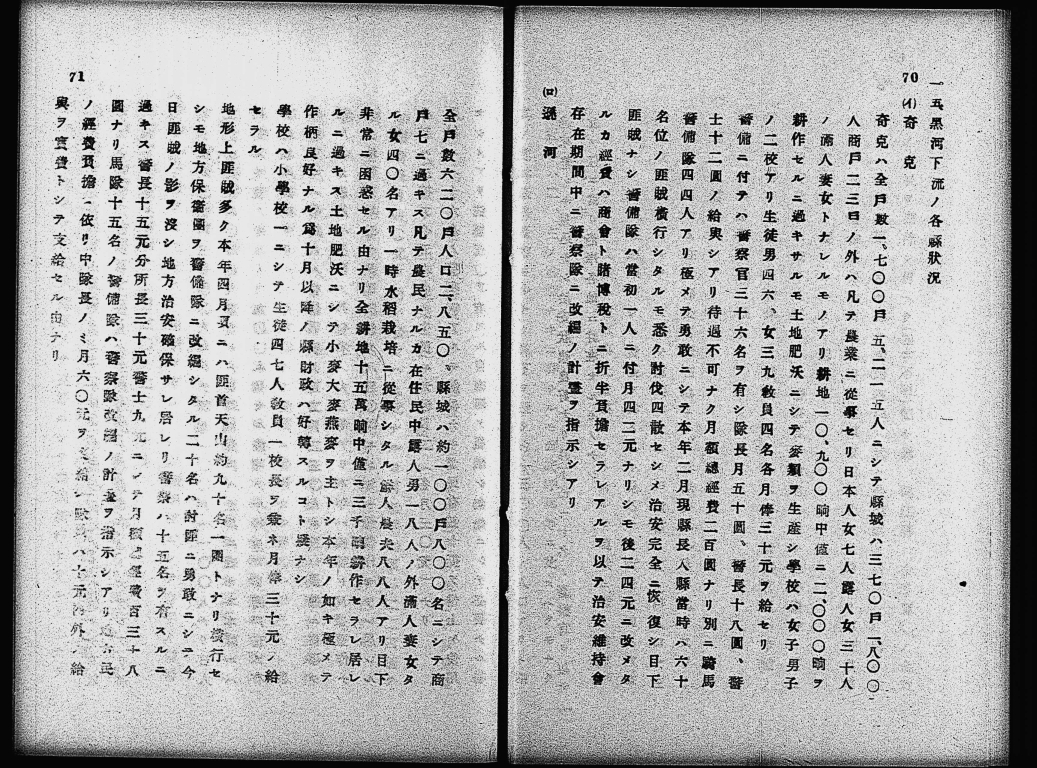 70
一五、黒河下流ノ各縣狀況
(イ) 奇克
奇克ハ全戸數一、七〇〇戸五、二一五人ニシテ縣城ハ三七〇戸一、八〇〇
人商戸二三口ノ外ハ凡テ農業ニ從事セリ日本人女七人露人女三十人
ノ滿人妻女トナレルモノアリ耕地一〇、九〇〇晌中僅ニ二、〇〇〇晌ヲ
耕作セルニ過キサルモ土地肥沃ニシテ麥類ヲ生產シ學校ハ女子男子
ノ二校アリ生徒男四六、女三九敎員四名各月俸三十元ヲ給セリ
警備ニ付テハ警察官三十六名ヲ有シ隊長月五十圓、警長十八圓、警
士十二圓ノ給與シアリ待遇不可ナク月額總經費二百圓ナリ別ニ騎馬
警備隊四四人アリ極メテ勇敢ニシテ本年二月現縣長入縣當時ハ六十
名位ノ匪賊橫行シタルモ悉ク討伐四散セシメ治安完全ニ恢復シ日下
匪賊ナシ警備隊ハ當初一人ニ付月四二元ナリシモ後二四元ニ改メタ
ルカ經費ハ商會ト賭博稅トニ折半負擔セラレアルヲ以テ治安維持會
存在期間中ニ警察隊ニ改編ノ計畫ヲ指示シアリ
(ロ) 遜河
71
全戸數六二〇戸人口二、八五〇、縣城ハ約一〇〇戸八〇〇名ニシテ商
戸七ニ過キス凡テ農民ナルカ在住民中露人男一八人ノ外滿人妻女タ
ル女四〇名アリ一時水稻栽培ニ從事シタル鮮人農夫八八人アリ日下
非常ニ困惑セル由ナリ全耕地十五萬晌中僅ニ三千晌耕作セラレ居レ
ルニ過キス土地肥沃ニシテ小麥大麥燕麥ヲ主トシ本年ノ如キ極メテ
作柄良好ナル爲十月以降ノ縣財政ハ好轉スルコト樣ナシ
學校ハ小學校一ニシテ生徒四七人敎員一校長ヲ兼ネ月俸三十元ノ給
セラル
地形上匪賊多ク本年四月頃ニハ匪首天山約九十名一團トナリ橫行セ
シモ地方保衞團ヲ警備隊ニ改編シタル二十名ハ討匪ニ勇敢ニシテ今
日匪賊ノ影ヲ沒シ地方治安確保サレ居レリ警察ハ十五名ヲ有スルニ
過キス警長十五元分所長三十元警士九元ニシテ月額總經費百三十八
圓ナリ馬隊十五名ノ警備隊ハ警察隊改編ノ計畫ヲ指示シアリ 民
ノ經費負擔ニ依リ中隊長ノミ月六〇元ヲ支給シ ハ十元內外ノ給
與ヲ實費トシテ支給セル由ナリ